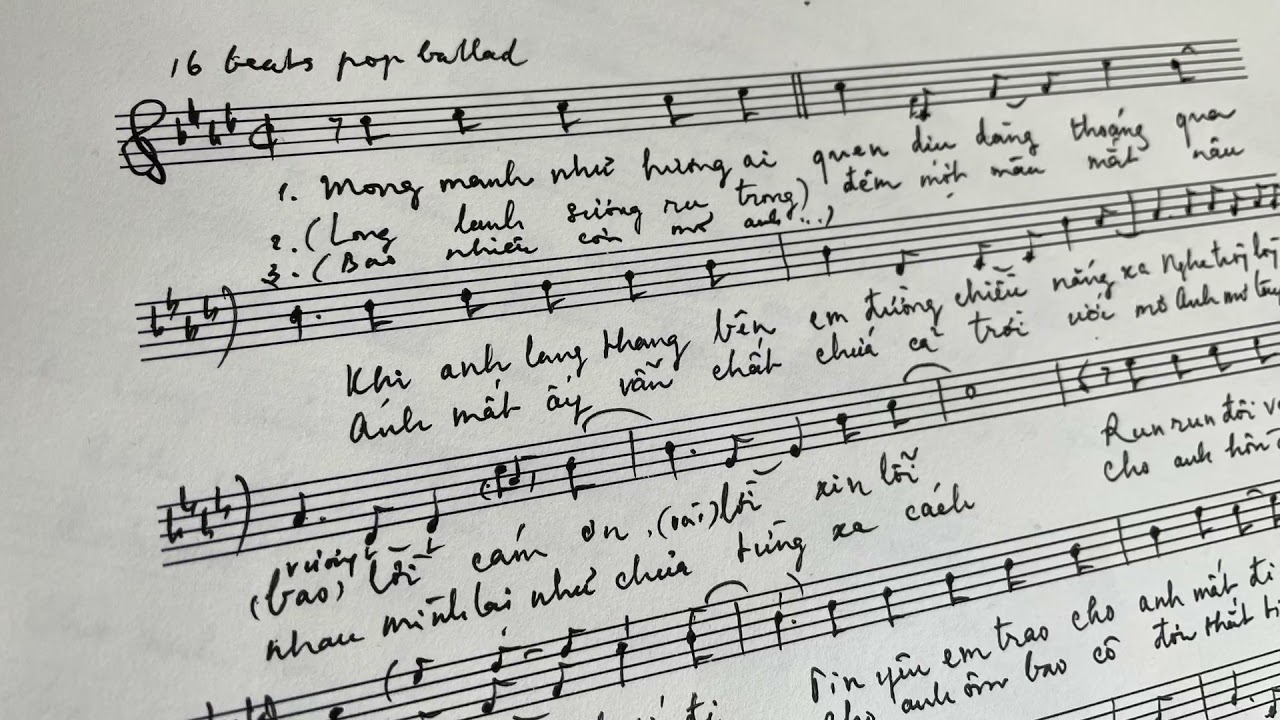 16 beats pop ballad
1. Mong manh như hương ai quen dịu dàng thoáng qua
2. (Long lanh sương ru trong) đêm một màu mắt nâu
3. (Bao nhiêu cơn mơ anh...)
Khi anh lang thang bên em đường chiều nắng xa Nghe trôi
Ánh mắt ấy vẫn chất chứa cả trời ước mơ Anh mơ
vương
(bao) lỗi cám ơn, (vài) lỗi xin lỗi Run run đôi
nhau mình lại như chưa từng xa cách cho anh hôn
Tin yêu em trao cho anh mất đi
cho anh ôm bao cô đơn thắt
đi